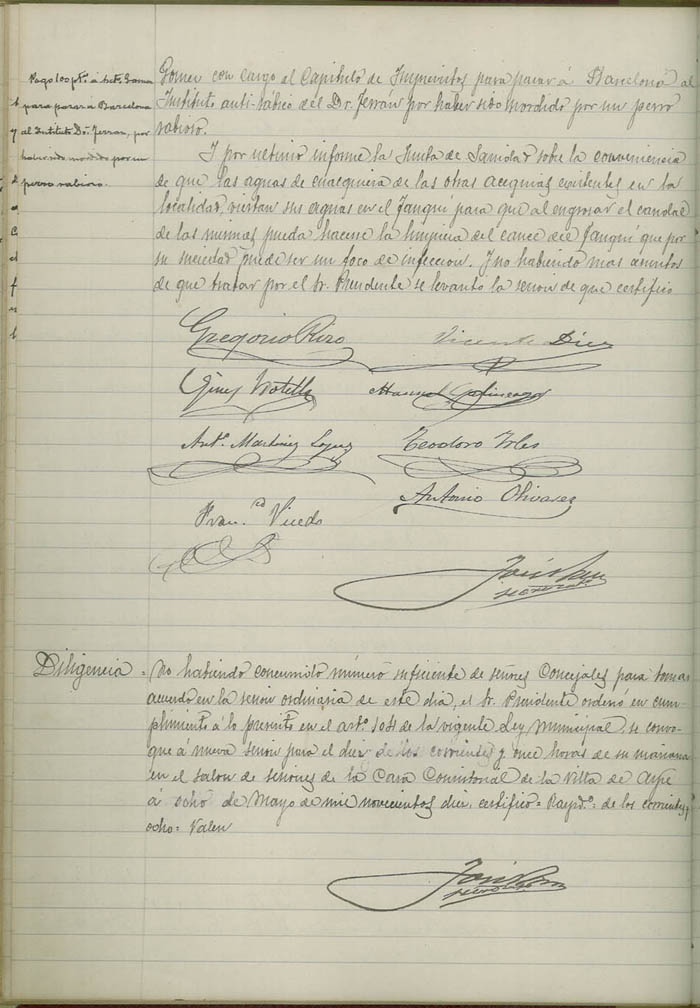 Pago 100 pts. á Ant. Goma
para pasar a Barcelona
y al Instituto Dr. Ferrán, por
habiendo mordido por un
perro rabioso.
Gomez con cargo al Capitulo de Imprevistos para pasar á Barcelona al
Instituto anti-rábico del Dr. Ferrán por haber sido mordido por un perro
rabioso.
Y por ultimo informe la Junta de Sanidad sobre la conveniencia
de que las aguas de cualquiera de las otras acequias existentes en la
localidad, viertan sus aguas en el Fanqui para que al engrosar el caudal
de las mismas pueda hacerse la limpieza del cauce del Fanqui que por
su suciedad puede ser un foco de infeccion. Y no habiendo mas asuntos
de que tratar por el Sr. Presidente se levantó la sesion de que certifico
Gregorio Rizo Vicente Diez
Gines Botella Manuel
Antº. Martinez Lopez Teodoro
Antonio Olivares
Fran.co Vicedo
José
secretario
Diligencia = No habiendo concurrido número suficiente de señores Concejales para tomar
acuerdo en la sesion ordinaria de este dia, el Sr. Presidente ordenó en cum-
plimiento á lo prescrito en el artº. 104 de la vigente Ley Municipal, se convo-
que á nueva sesion para el diez de los corrientes y once horas de su mañana
en el salon de sesiones de la Casa Consistorial de la Villa de Aspe
á ocho de Mayo de mil novecientos diez, certifico = Raspdº. = de los corrientes,
ocho = Valen
José
secretario